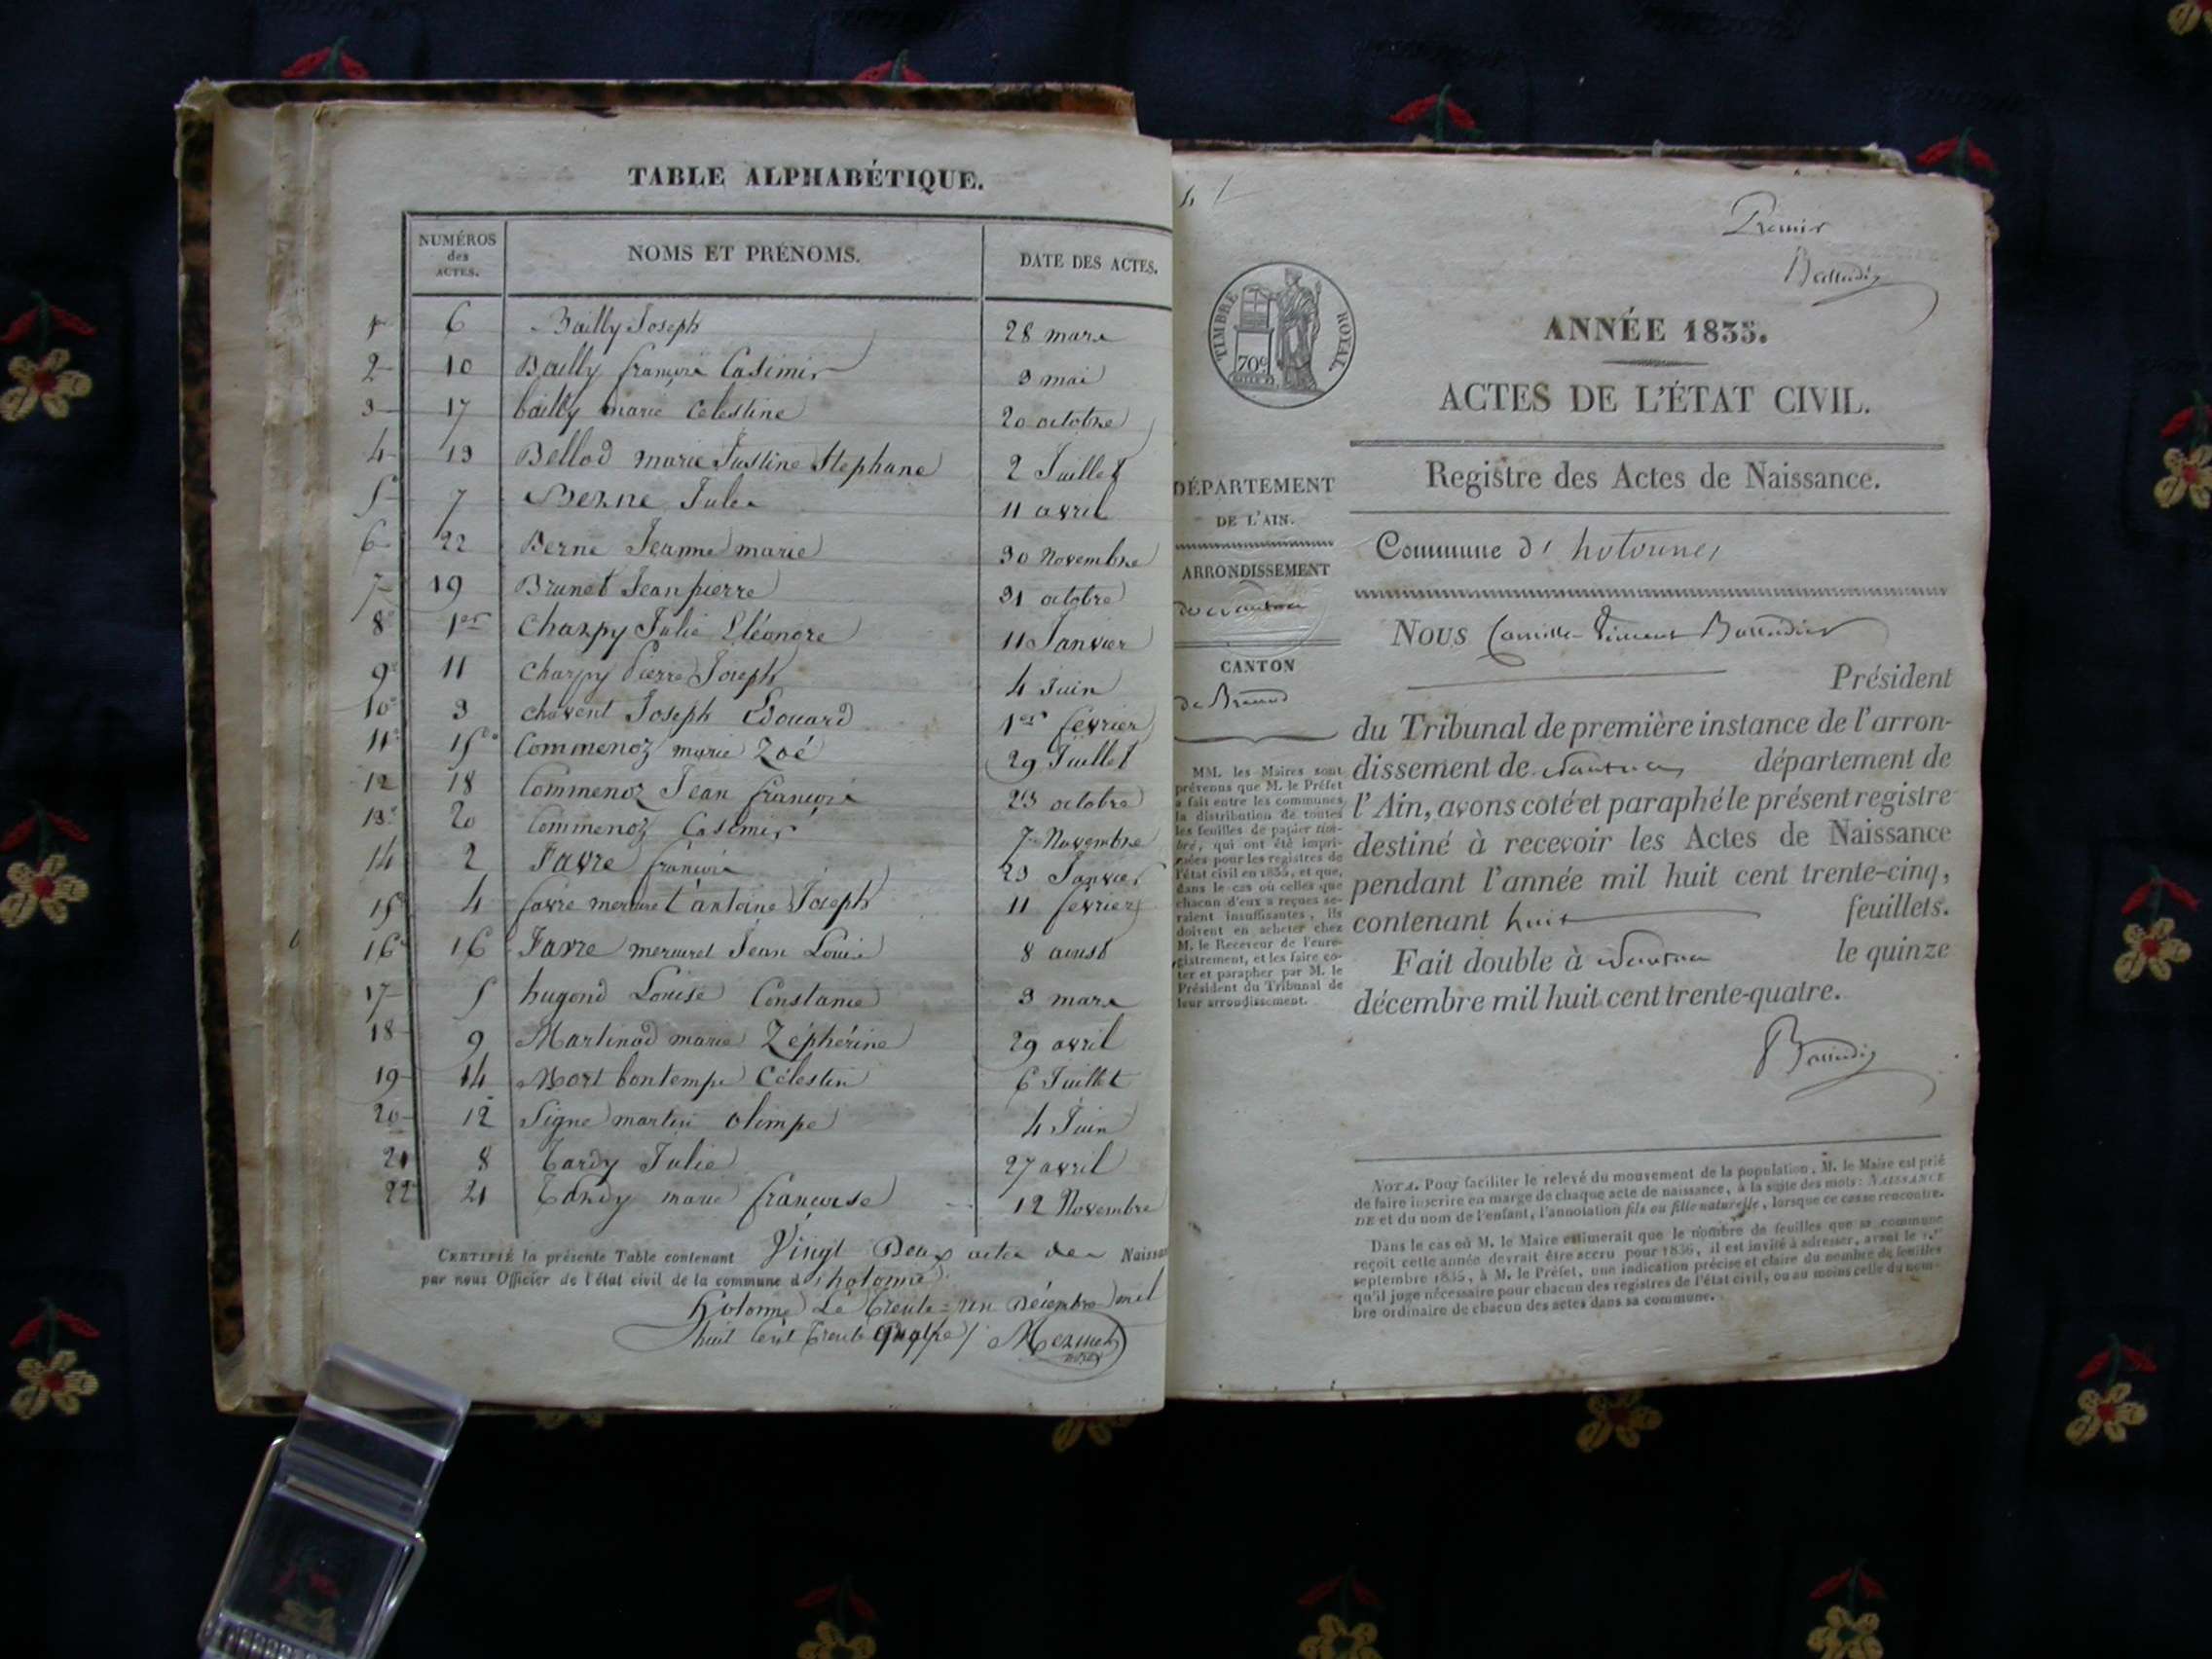 TABLE ALPHABÉTIQUE.
NUMÉROS des ACTES. NOMS ET PRÉNOMS. DATE DES ACTES.
1 6 Bailly Joseph 28 mars
2 10 Bailly françois Casimir 9 mai
3 17 bailly marie Celestine 20 octobre
4 13 Bellod marie Justine Stephane 2 Juillet
5 7 Berne Jules 11 avril
6 22 Berne Jeanne marie 30 Novembre
7 19 Brunet Jean pierre 31 octobre
8e 1er Charpy Julie Eléonore 11 Janvier
9e 11 Charpy Pierre Joseph 4 Juin
10e 3 Chavent Joseph Edouard 1er fevrier
11e 15 Commenoz marie Zoé 29 Juillet
12 18 Commenoz Jean françois 23 octobre
13e 20 Commenoz Casimir 7 Novembre
14 2 Favre françois 23 Janvier
15 4 favre mercuret antoine Joseph 11 fevrier
16e 16 Favre mercuret Jean Louis 8 aoust
17 5 hugond Louise Constance 3 mars
18 9 Martinod marie Zéphérine 29 avril
19 14 Mort bontemps Célestin 6 Juillet
20 12 Signe martin olimpe 4 Juin
21 8 Tardy Julie 27 avril
22 21 Tardy marie françoise 12 Novembre
CERTIFIÉ la présente Table contenant Vingt Deux actes de Naissa
par nous Officier de l'état civil de la commune d'hotonne
hotonne Le trente-un Décembre mil
huit Cent trente quatre
Premier
TIMBRE ROYAL
70c
ANNÉE 1835.
ACTES DE L'ÉTAT CIVIL.
Registre des Actes de Naissance.
Commune d'hotonnes
DÉPARTEMENT
DE L'AIN.
ARRONDISSEMENT
de nantua
CANTON
de Brenod
MM. les Maires sont
prévenus que M. le Préfet
a fait entre les communes
la distribution de toutes
les feuilles de papier tim-
bré, qui ont été impri-
mées pour les registres de
l'état civil en 1835, et que,
dans le cas où celles que
chacun d'eux a reçues se-
raient insuffisantes, ils
doivent en acheter chez
M. le Receveur de l'enre-
gistrement, et les faire co-
ter et parapher par M. le
Président du Tribunal de
leur arrondissement.
NOUS Camille Vincent
Président
du Tribunal de première instance de l'arron-
dissement de nantua département de
l'Ain, avons coté et paraphé le présent registre
destiné à recevoir les Actes de Naissance
pendant l'année mil huit cent trente-cinq,
contenant huit feuillets.
Fait double à nantua le quinze
décembre mil huit cent trente-quatre.
NOTA. Pour faciliter le relevé du mouvement de la population, M. le Maire est prié
de faire inscrire en marge de chaque acte de naissance, à la suite des mots: NAISSANCE
DE et du nom de l'enfant, l'annotation fils ou fille naturelle, lorsque ce cas se rencontre.
Dans le cas où M. le Maire estimerait que le nombre de feuilles que sa commune
reçoit cette année devrait être accru pour 1836, il est invité à adresser, avant le 1.er
septembre 1835, à M. le Préfet, une indication précise et claire du nombre de feuilles
qu'il juge nécessaire pour chacun des registres de l'état civil, ou au moins celle du nom-
bre ordinaire de chacun des actes dans sa commune.